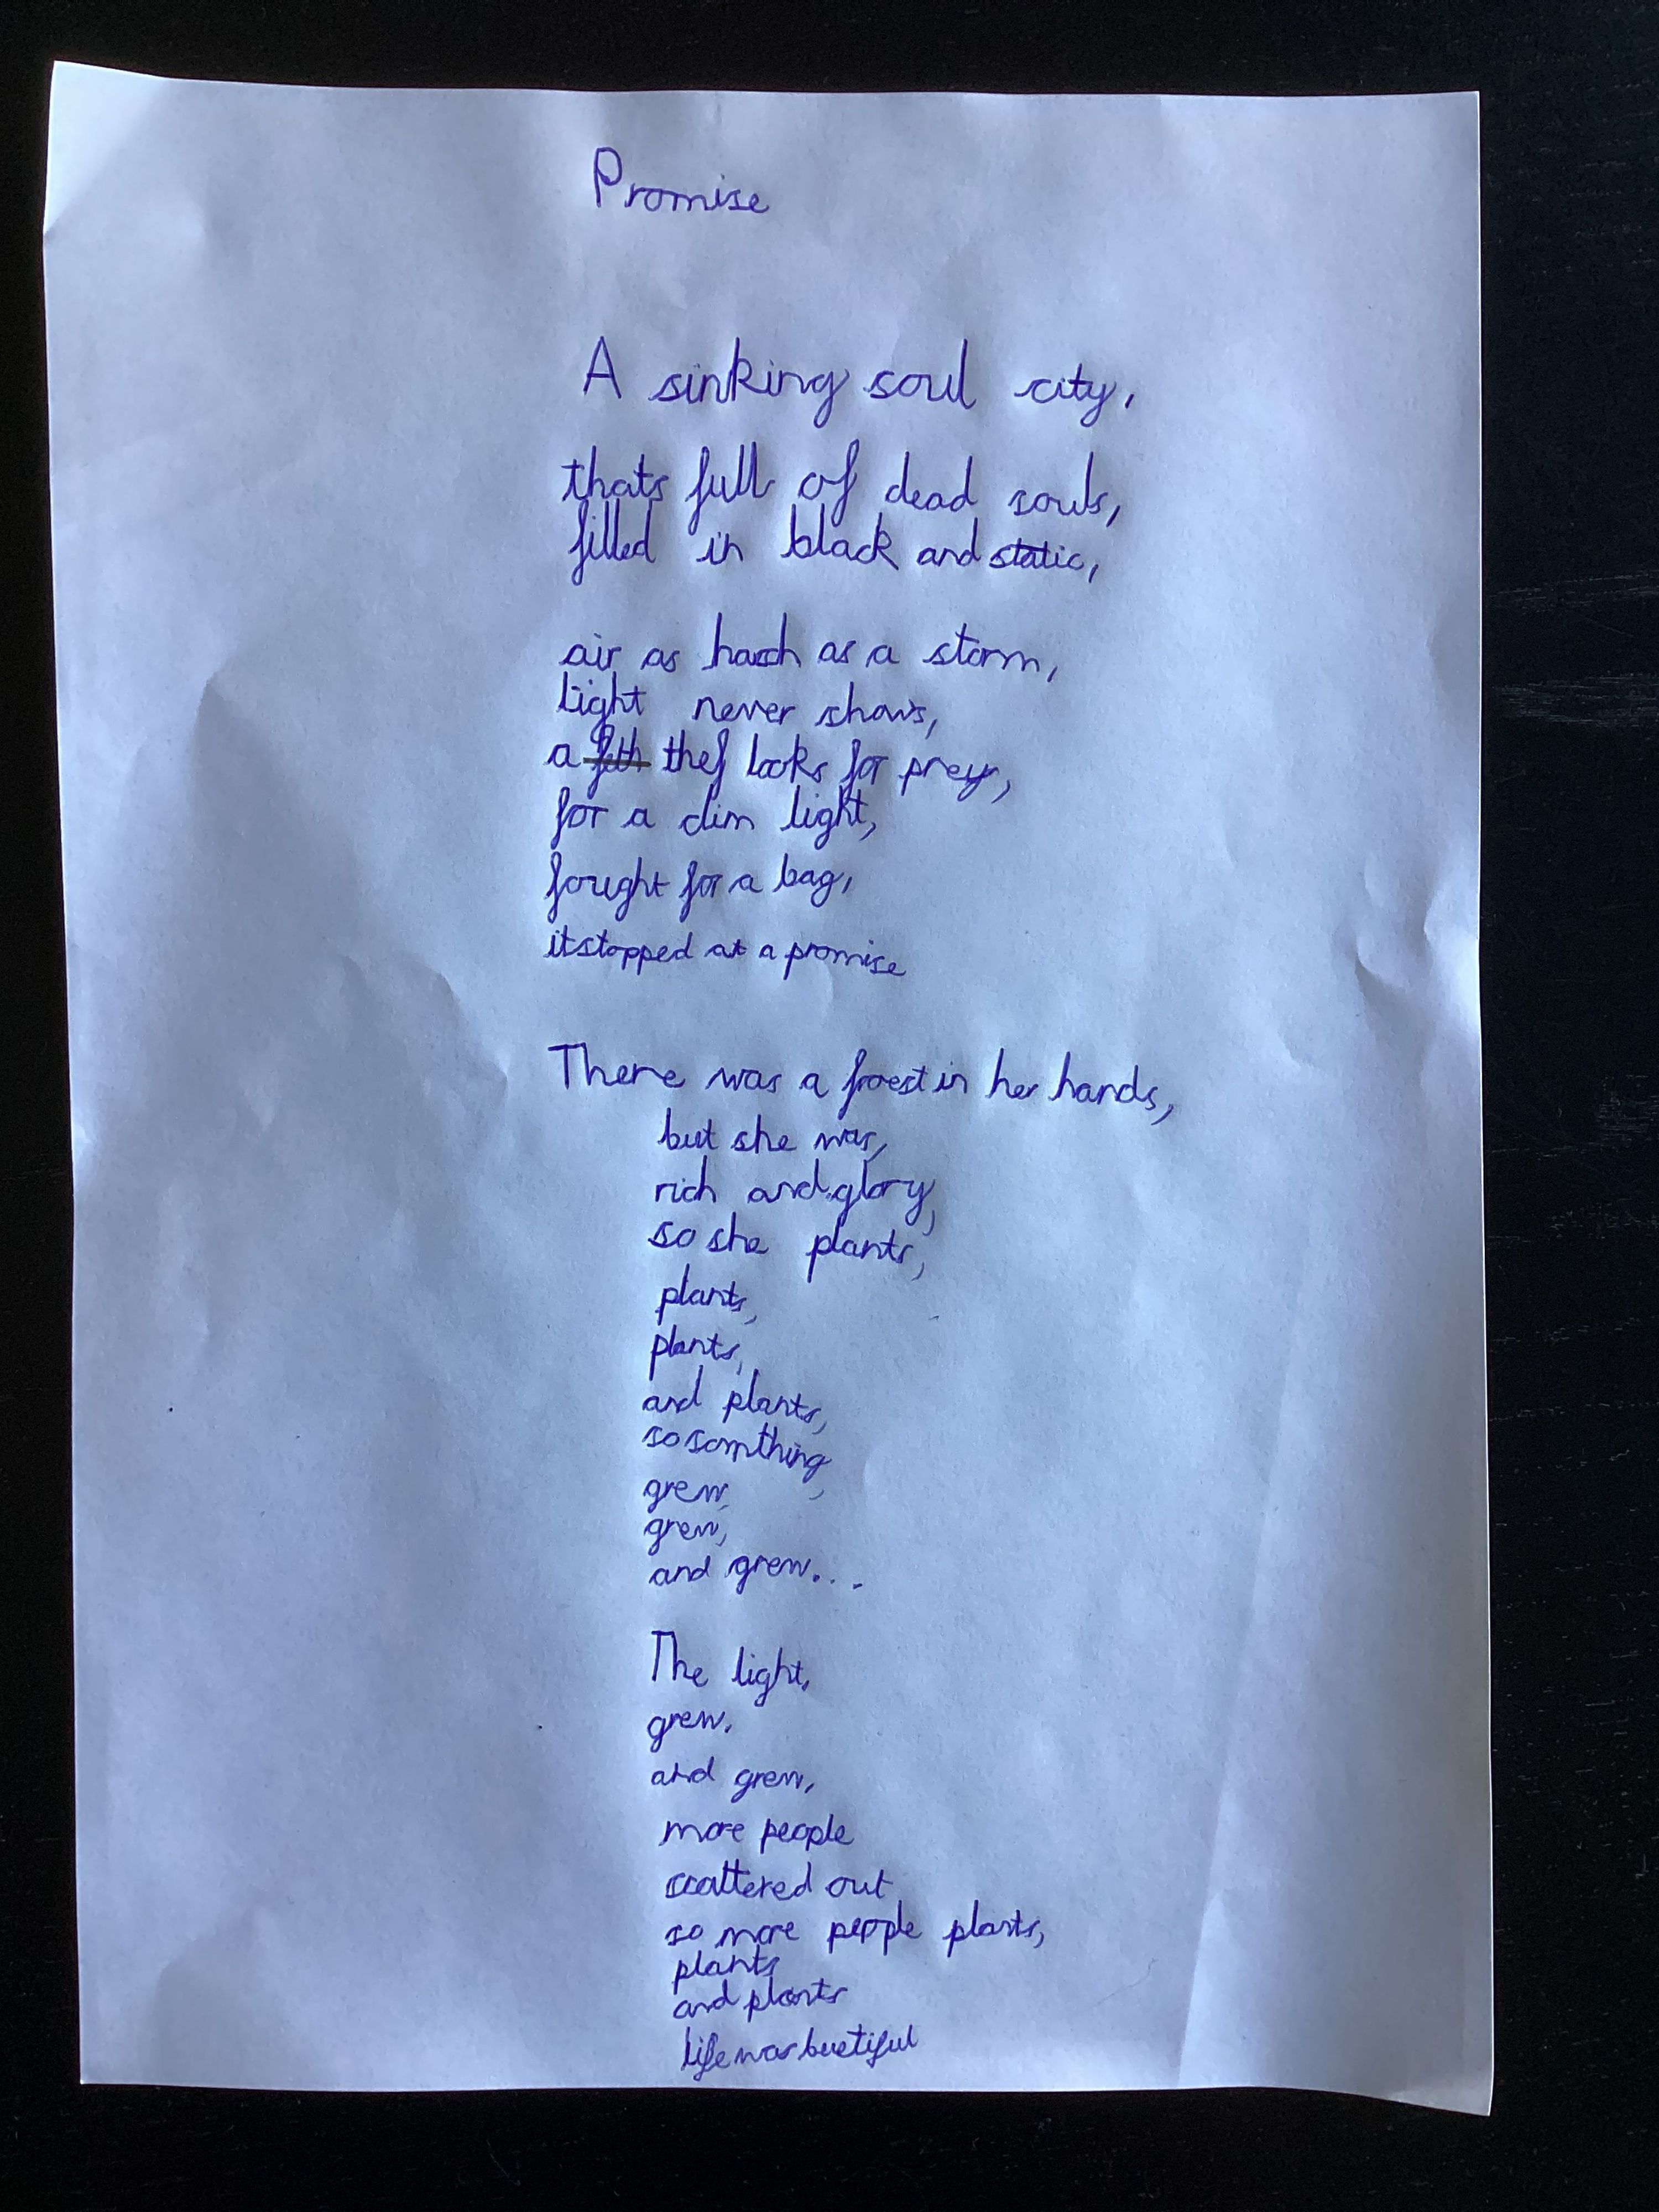 Promise
A sinking soul city,
thats full of dead souls,
filled in black and static,
air as harch as a storm,
light never shows,
a thef looks for prey,
for a dim light,
fought for a bag,
it stopped at a promise
There was a froest in her hands,
but she was,
rich and glory,
so she plants,
plants,
plants,
and plants,
so somthing,
grew,
grew,
and grew...
The light,
grew,
and grew,
more people
scattered out
so more people plants,
plants
and plants
life was buetiful